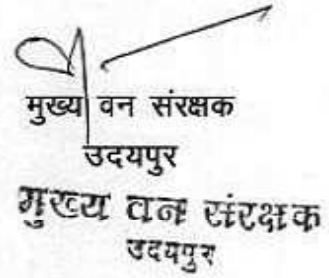 मुख्य वन संरक्षक
उदयपुर
मुख्य वन संरक्षक
उदयपुर